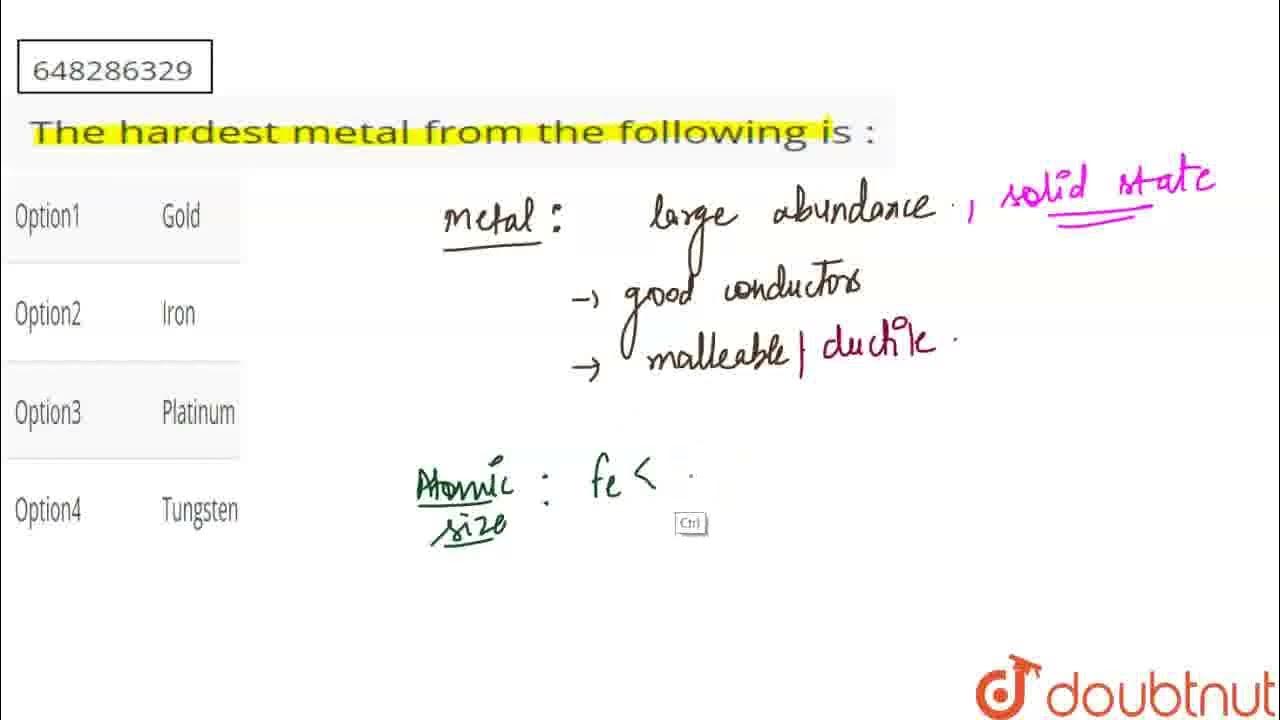 648286329
The hardest metal from the following is :
Option1 Gold
Option2 Iron
Option3 Platinum
Option4 Tungsten
Metal : large abundance . , solid state
→ good conductors
→ malleable | ductile .
Atomic size : fe <
Ctrl
doubtnut